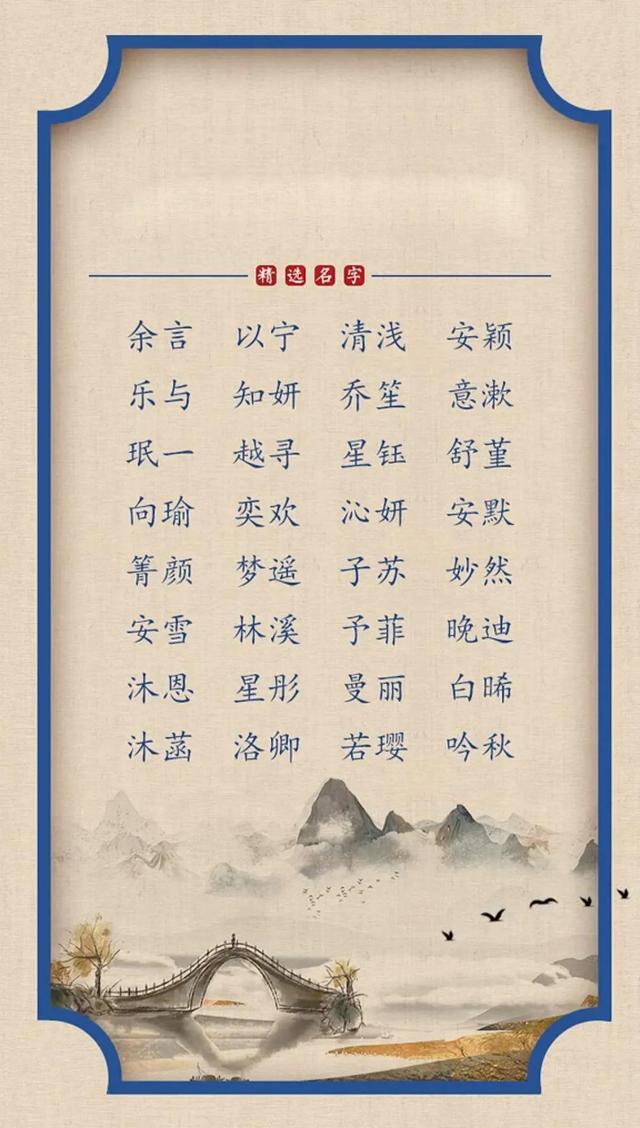 精选名字
余言 以宁 清浅 安颖
乐与 知妍 乔笙 意漱
珉一 越寻 星钰 舒堇
向瑜 奕欢 沁妍 安默
箐颜 梦遥 子苏 妙然
安雪 林溪 予菲 晚迪
沐恩 星彤 曼丽 白晞
沐菡 洛卿 若璎 吟秋